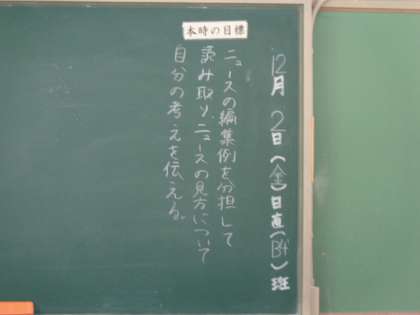 12月2日(金)日直(B4)班
本時の目標
ニュースの編集例を分担して
読み取り、ニュースの見方について
自分の考えを伝える。